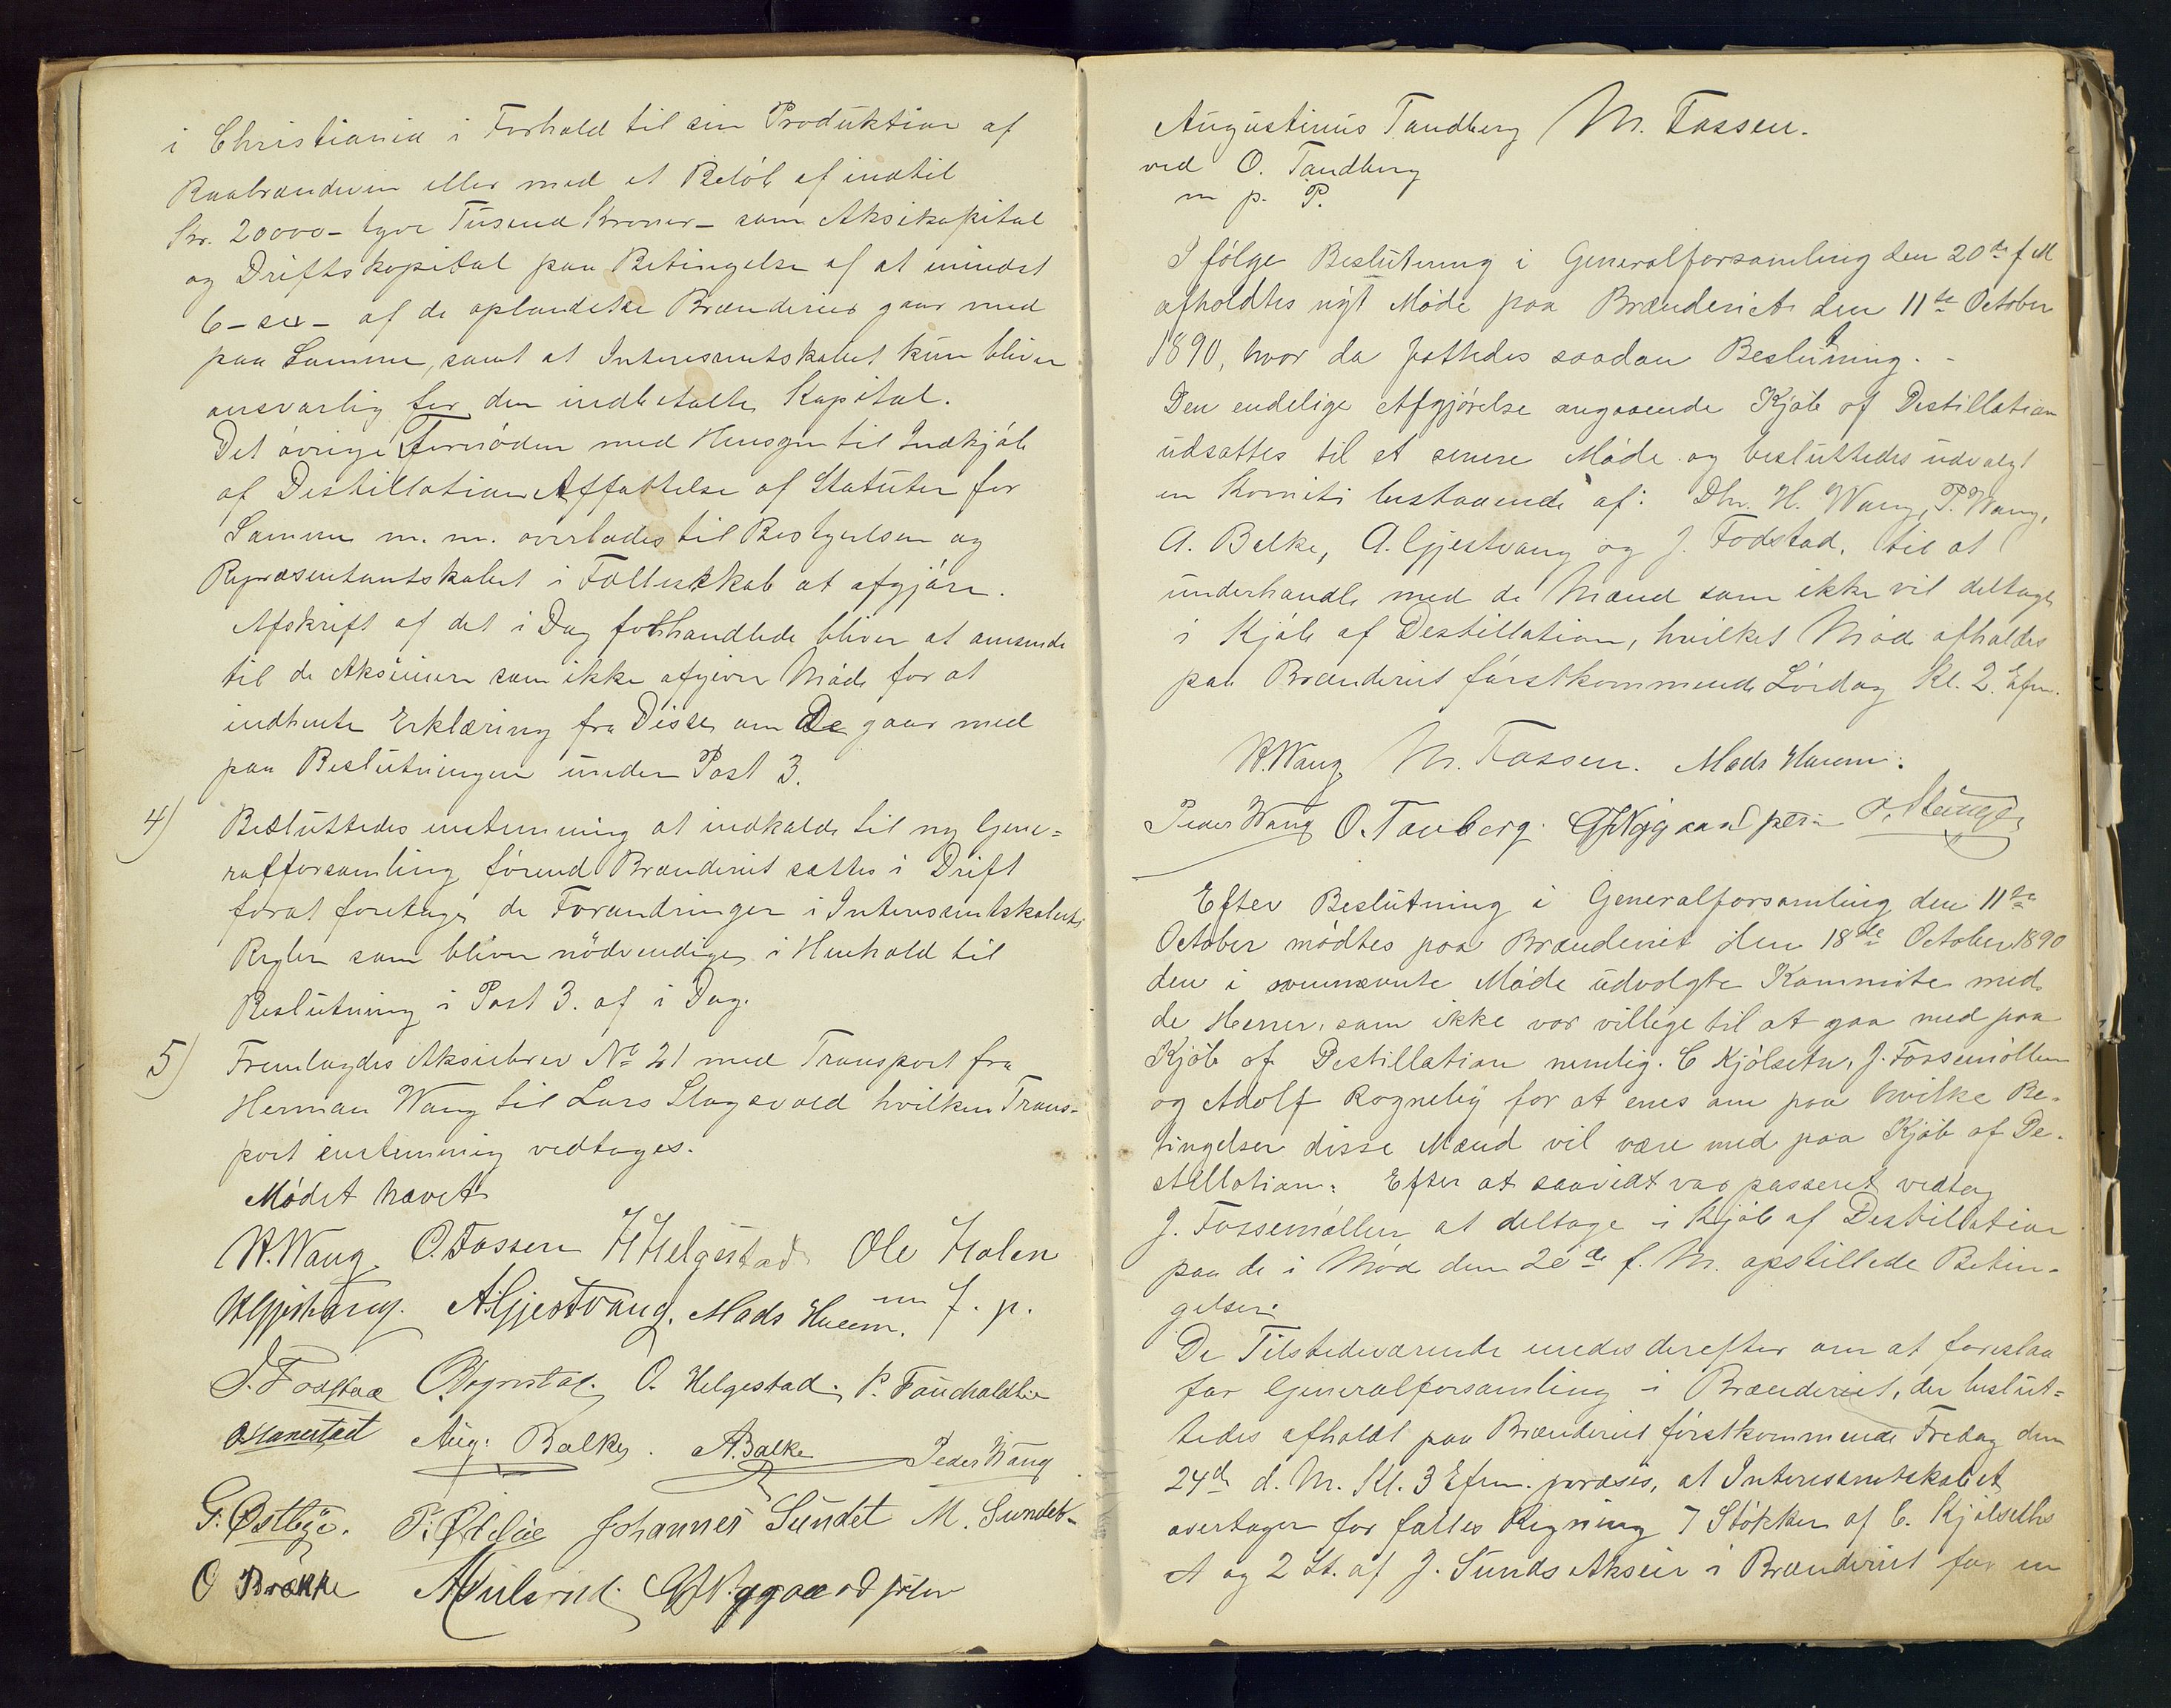 i Christiania i Forhold til sin Produktion af
Raabrændevin eller med et Beløb af indtil
Kr. 20000 - tyve Tusend Kroner - som Aksiekapital
og Driftskapital paa Betingelse af at mindst
6 - sex - af de oplandske Brænderier gaar med
paa Samme, samt at Interesentskabet kun bliver
ansvarlig for den indbetalte Kapital.
Det øvrige fornøden med Hensyn til Indkjøb
af Destillation Affattelse af Statuter for
Samme m. m. overlodes til Bestyrelsen og
Repræsentantskabet i Fællesskab at afgjøre.
Afskrift af det i Dag forhandlede bliver at omsende
til de Aksieiere som ikke afgiver Møde for at
indhente Erklæring fra Disse om De gaar med
paa Beslutningen under Post 3.
4) Besluttedes enstemmig at indkalde til ny Gene=
ralforsamling førend Brænderiet sættes i Drift
forat foretage de Forandringer i Interesentskabets
Regler som bliver nödvendige i Henhold til
Beslutning i Post 3. af i Dag.
5) Fremlagdes Aksiebrev No 21 med Transport fra
Herman Wang til Lars Slagsvold hvilken Trans-
port enstemmig vedtages.
Mødet hævet
H. Wang. O. Fossen H Helgestad Ole Holen
A. Gjestvang. Mads Huem. m f. p.
J. Fodstad O. Helgestad. P. Fauchaldlie
Aug. Balke. A. Balke Peder Wang
G. Østbye. Johannes Sundet M. Sundet
O Brække G Nygaard
Augustinus Tandberg M. Fossen.
ved O. Tandberg
m p. P.
I følge Beslutning i Generalforsamling den 20de f M
afholdtes nyt Møde paa Brænderiet den 11te October
1890, hvor da fattedes saadan Beslutning. -
Den endelige Afgjørelse angaaende Kjøb af Destillation
udsattes til et senere Møde og besluttedes udvalgt
en Komite bestaaende af: Dhr. H. Wang, P. Wang,
A. Balke, A. Gjestvang og J. Fodstad, til at
underhandle med de Mænd som ikke vil deltage
i Kjøb af Destillation, hvilket Møde afholdes
paa Brænderiet førstkommende Lørdag Kl. 2. Efm.
H. Wang M. Fossen. Mads Huem.
Peder Wang O. Tanberg. G Nygaard
Efter Beslutning i Generalforsamling den 11te
October mødtes paa Brænderiet den 18de October 1890
den i ovennævnte Møde udvalgte Kommite med
de Herrer, som ikke var villige til at gaa med paa
Kjøb af Destillation nemlig. C Kjølseth, J. Fossemøllen
og Adolf Rogneby for at enes om paa hvilke Be-
tingelser disse Mænd vil være med paa Kjøb af De-
stillation. Efter at saavidt var passeret vedtog
J. Fossemøllen at deltage i Kjøb af Destillation
paa de i Møde den 20de f. M. opstillede Betin-
gelser.
De Tilstedeværende enedes derefter om at foreslaa
for Generalforsamling i Brænderiet, der beslut=
tedes afholdt paa Brænderiet førstkommende Fredag den
24de d. M. Kl. 3 Efm. præsis, at Interesentskabet
overtager for fælles Regning 7 Støkker af C. Kjølseths
A og 2 St. af J. Sunds Aksier i Brænderiet for en